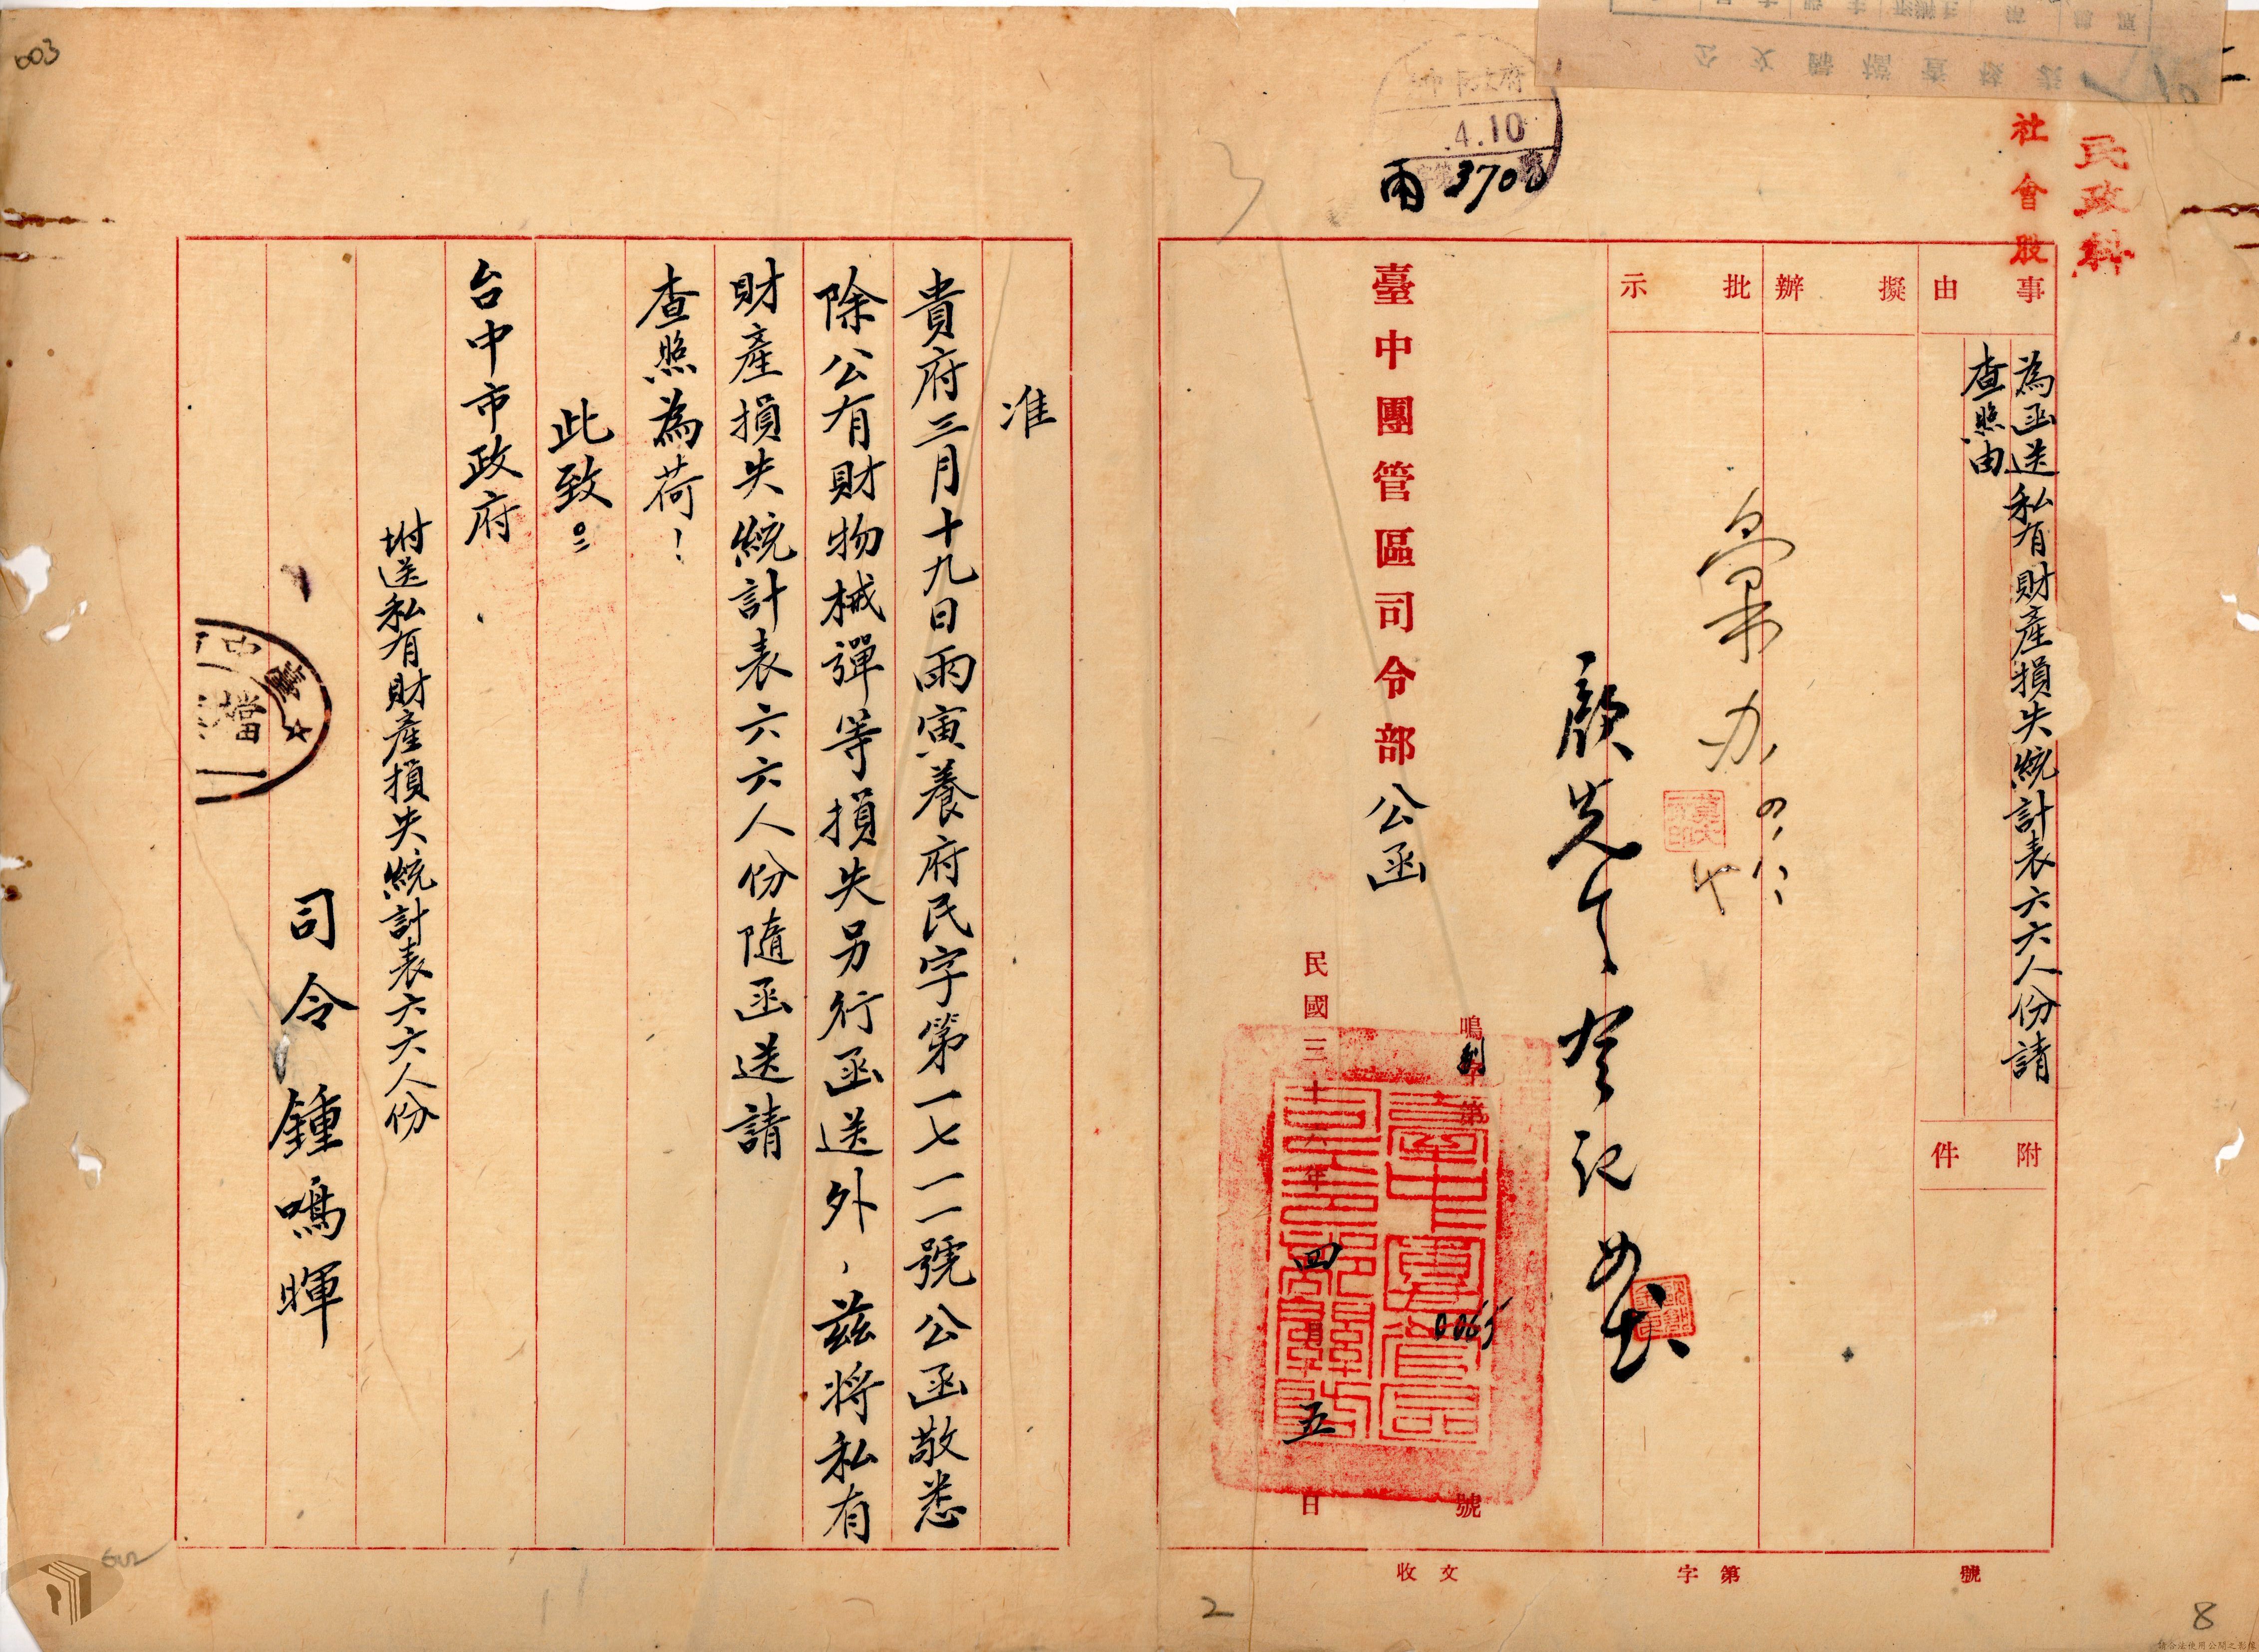 民政科
社會股
事由
為函送私有財產損失統計表六六人份請
查照由
附件
擬辦
彙办
批示
臺中團管區司令部公函
鳴 字第0065號
民國三十六年四月五日
4.10
雨 3700
收文
字第
號
准
貴府三月十九日雨寅養府民字第一七一一號公函敬悉
除公有財物械彈等損失另行函送外，茲將私有
財產損失統計表六六人份隨函送請
查照為荷！
此致
台中市政府
坿送私有財產損失統計表六六人份
司令鍾鳴暉
603
602
2
8
公文歸檔查核表